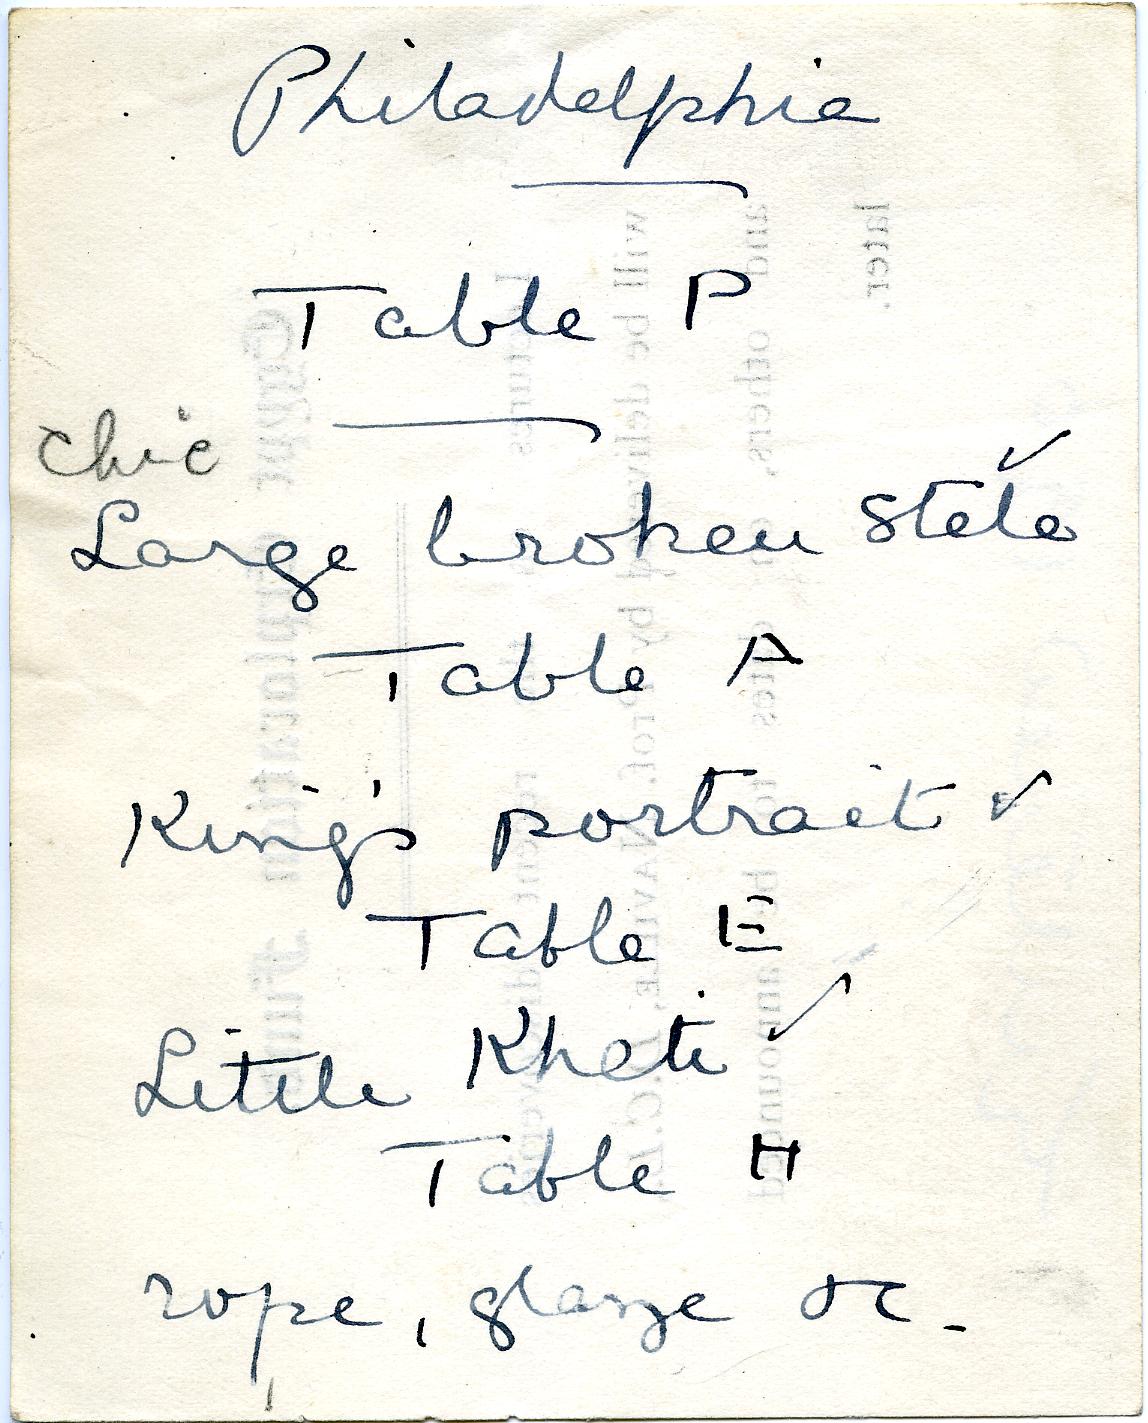 Philadelphia
Table P
Chic
Large broken stele ✓
Table A
King's portrait ✓
Table E
Little Kheti ✓
Table H
rope, glaze &c-